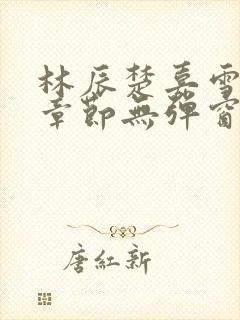 林辰楚嘉雪
章節無彈窗
唐紅新